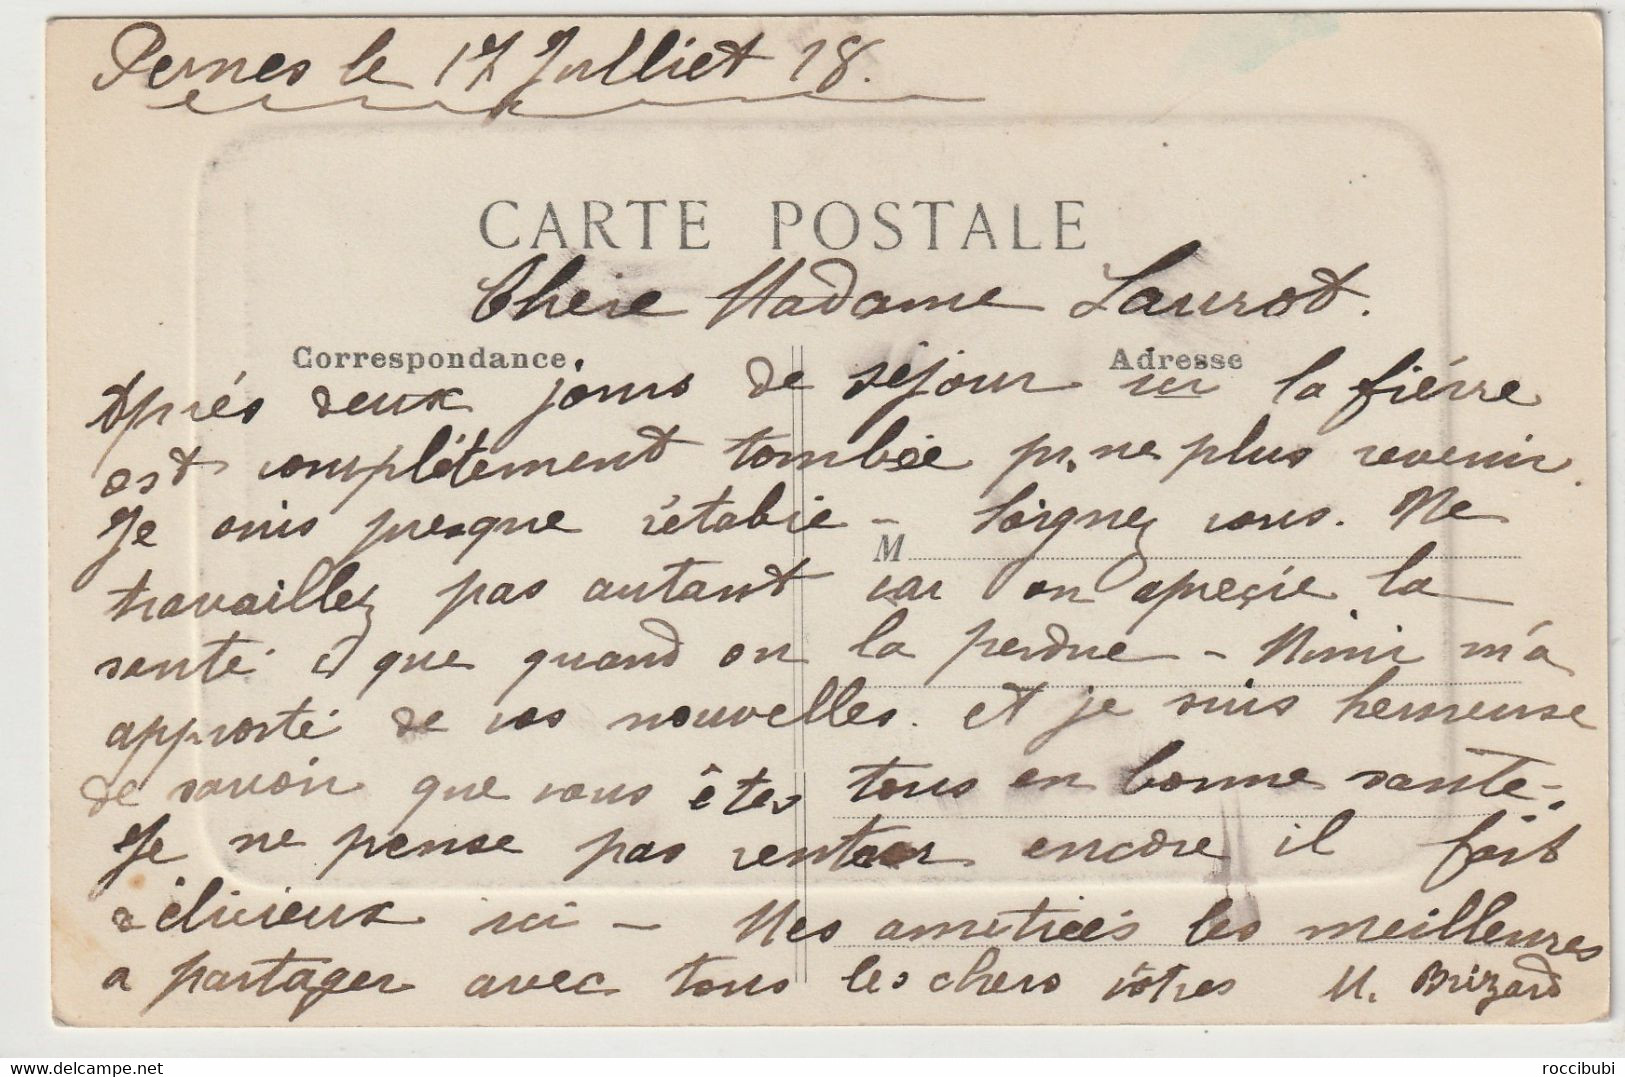 Pernes le 17 Julliet 18.
CARTE POSTALE
Chere Madame Laurot.
Correspondance
Adresse
Aprés deux jours de séjour ici la fiévre
est complétement tombée pr ne plus revenir.
Je suis presque rétablie - Soignez vous. Ne
M
travaillez pas autant car on apreçie la
santé que quand on la perdue - Mimi m'a
apporté de vos nouvelles. et je suis hereuse
de savoir que vous êtes tous en bonne santé -.
Je ne pense pas rentrer encore il fait
délicieux ici - Mes ametiées les meilleures
a partager avec tous les chers vôtres M. Brizard
delcampe.net
roccibubi